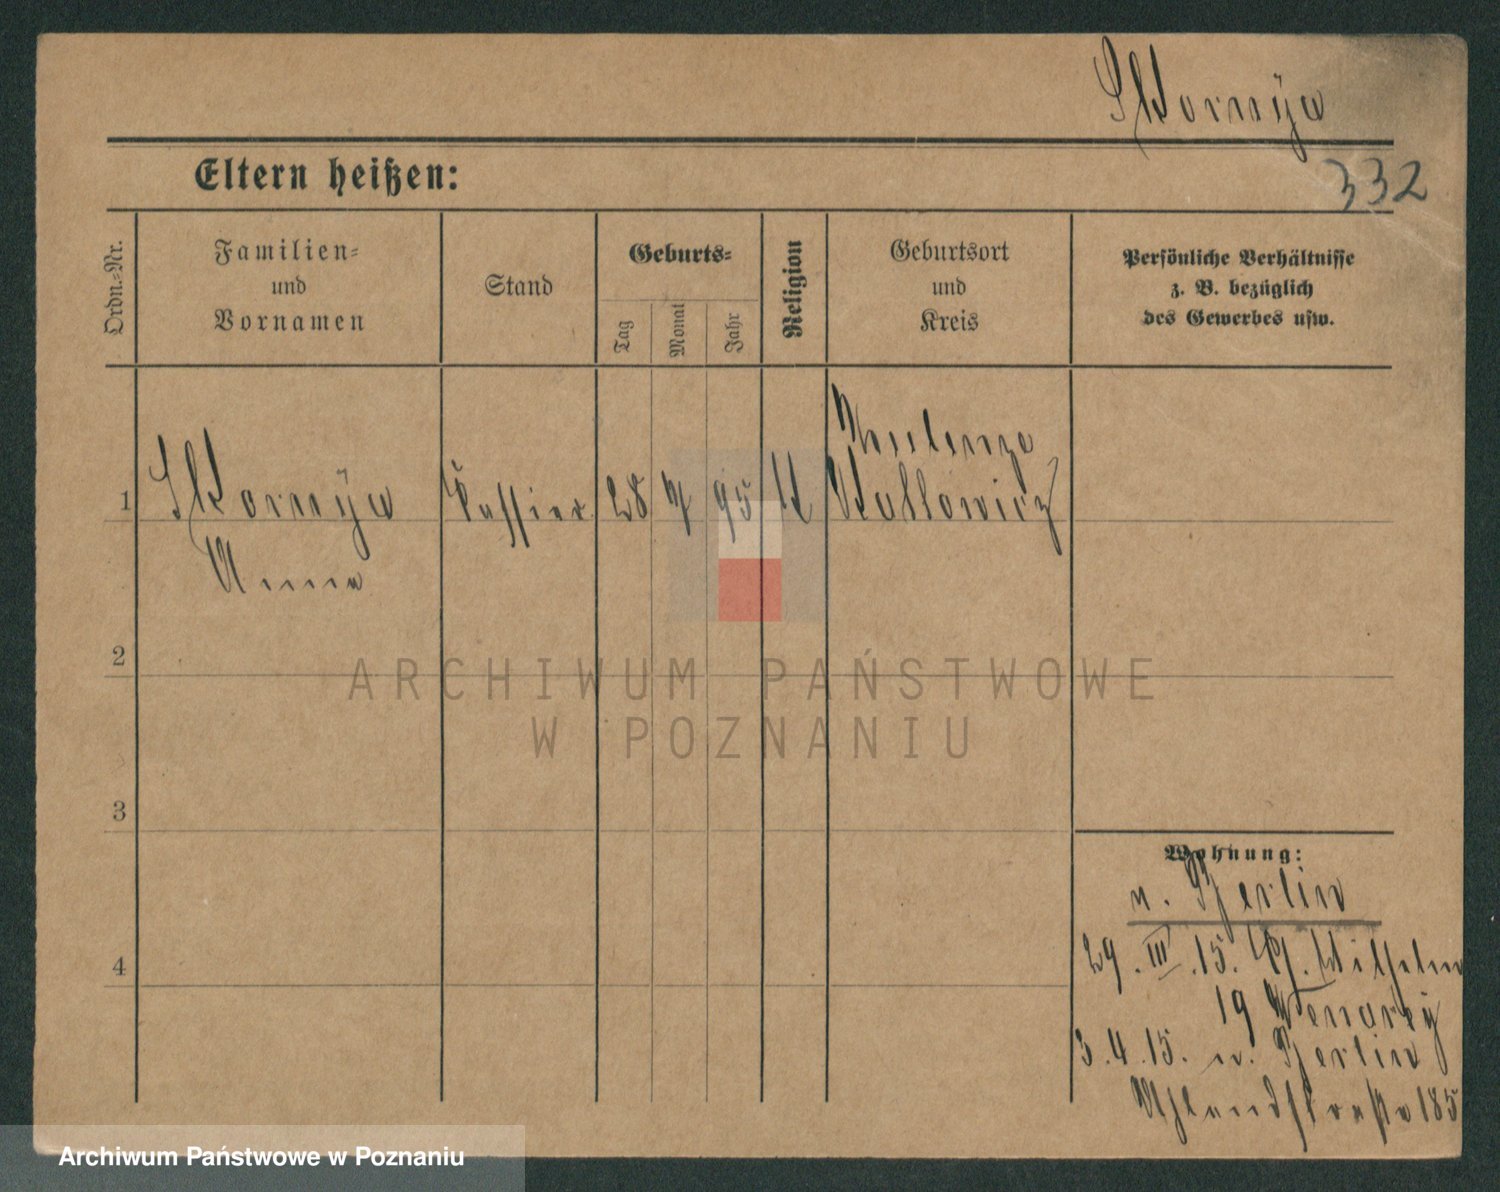 Skornýa
332
Eltern heißen:
Ordn.-Nr.
Familien-
und
Vornamen
Stand
Geburts-
Tag
Monat
Jahr
Religion
Geburtsort
und
Kreis
Persönliche Verhältnisse
z. B. bezüglich
des Gewerbes usw.
1
28
95
Anna
2
3
4
Wohnung:
n. Berlin
29. III. 15. Wilhelm
19
3. 4. 15. n. Berlin
Uhlandstraße 185
ARCHIWUM PAŃSTWOWE
W POZNANIU
Archiwum Państwowe w Poznaniu